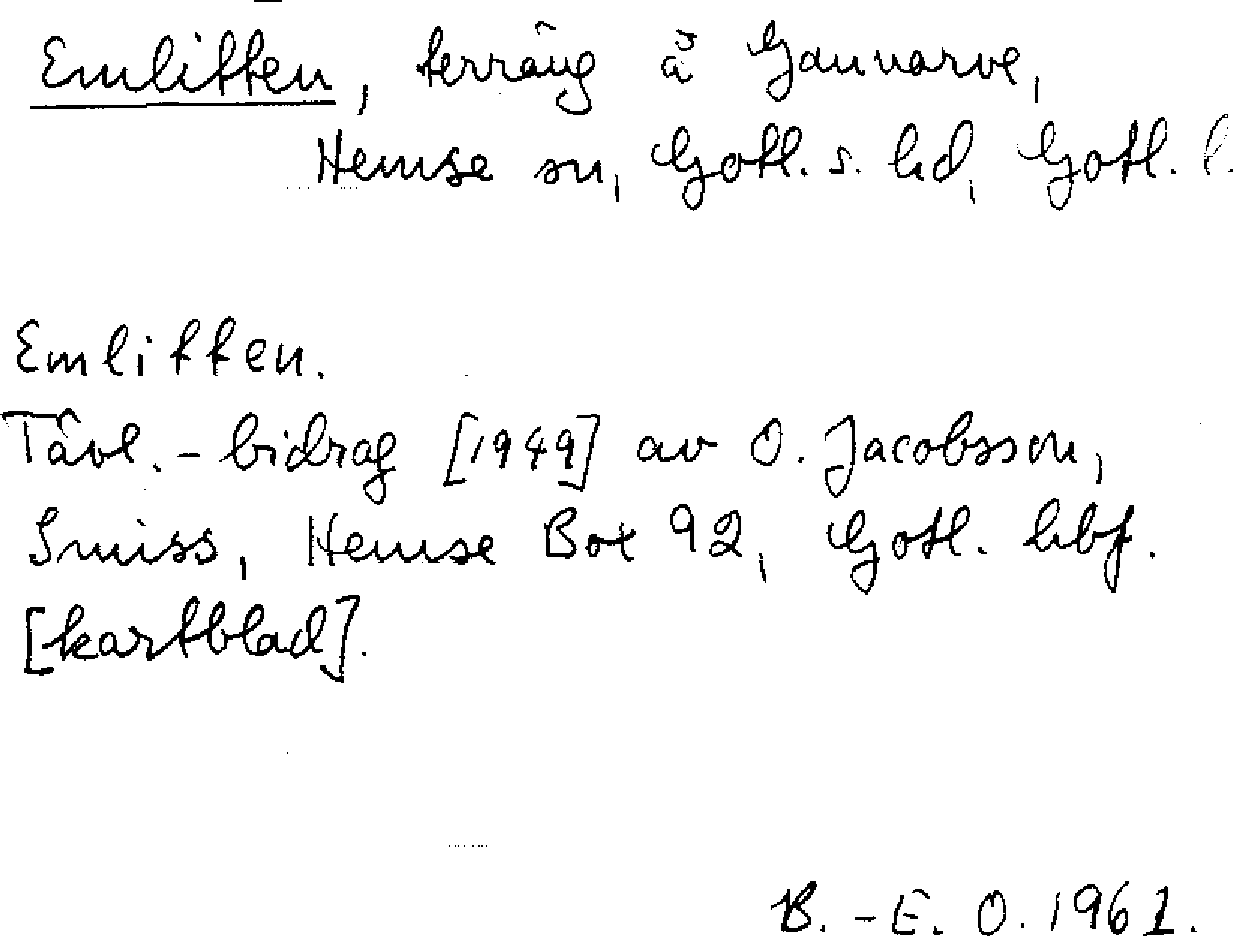 Emlitten, terräng å Gannarve,
Hemse sn, Gotl. s. hd, Gotl. l.
Emlitten.
Tävl.-bidrag [1949] av O. Jacobsson,
Smiss, Hemse Box 92, Gotl. hbf.
[kartblad].
B.-E. O. 1961.